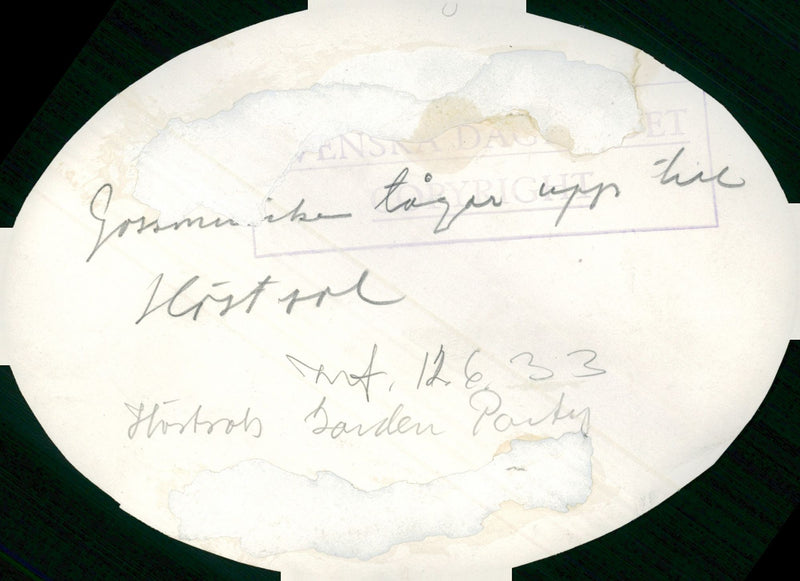 VENSKA DAG ET
COPYRIGHT
Gossmusiken tågar upp till
Höstsol
12 6 33
Höstsols Garden Party